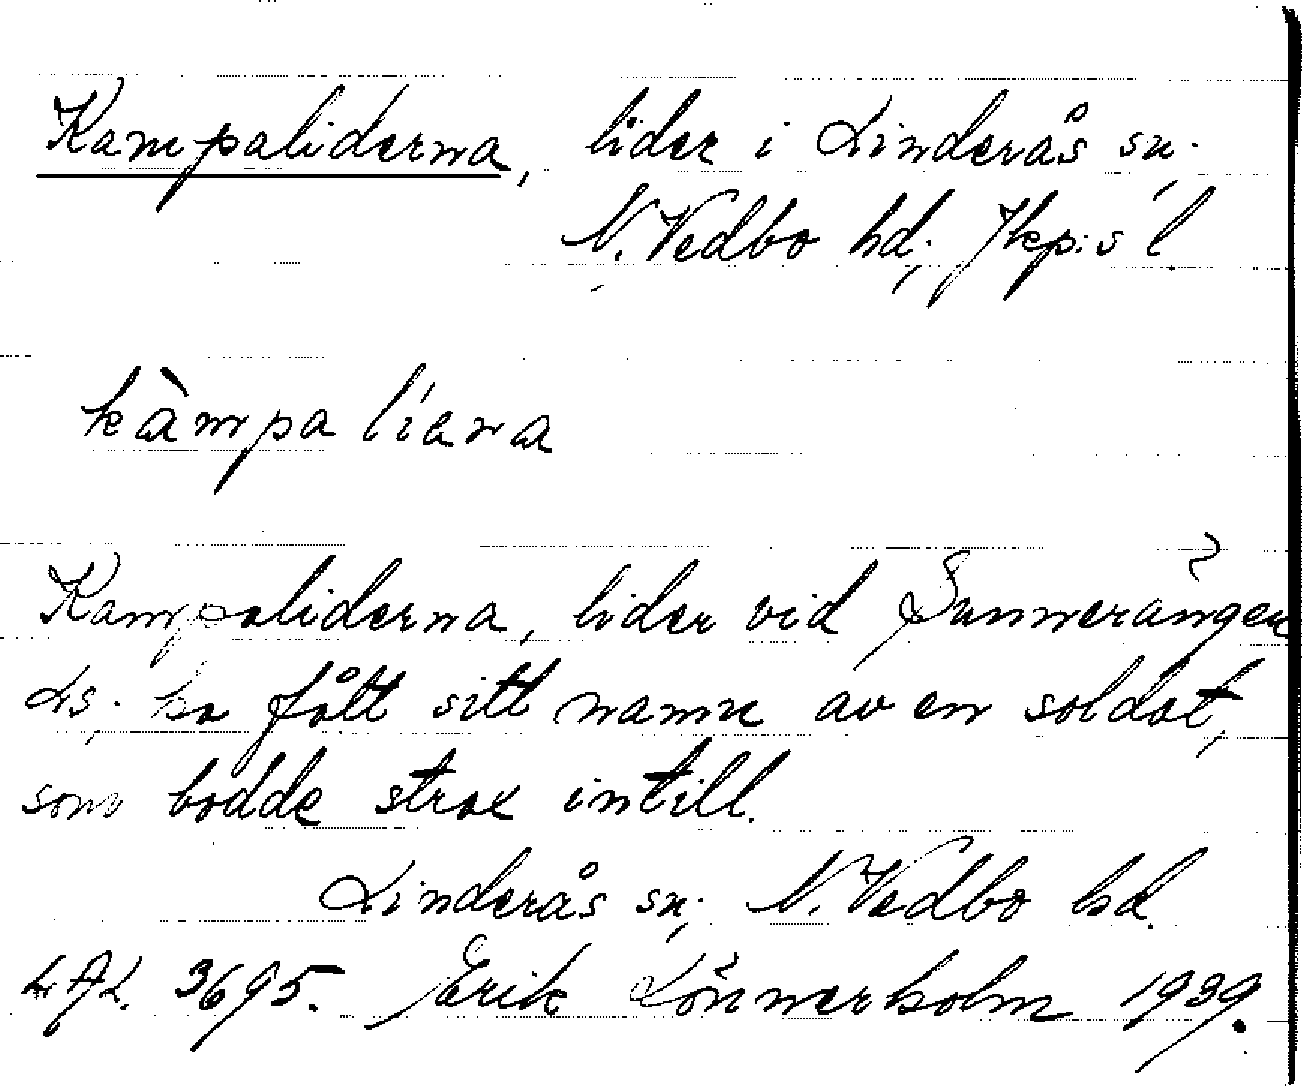 Kampaliderna, lider i Linderås sn.
N. Vedbo hd; Jkp:s l.
kàmpa líana
Kampaliderna, lider vid Sunnerängen
Ls. ha fått sitt namn av en soldat,
som bodde strax intill.
Linderås sn; N. Vedbo hd.
3695. Erik Lönnerholm 1939.